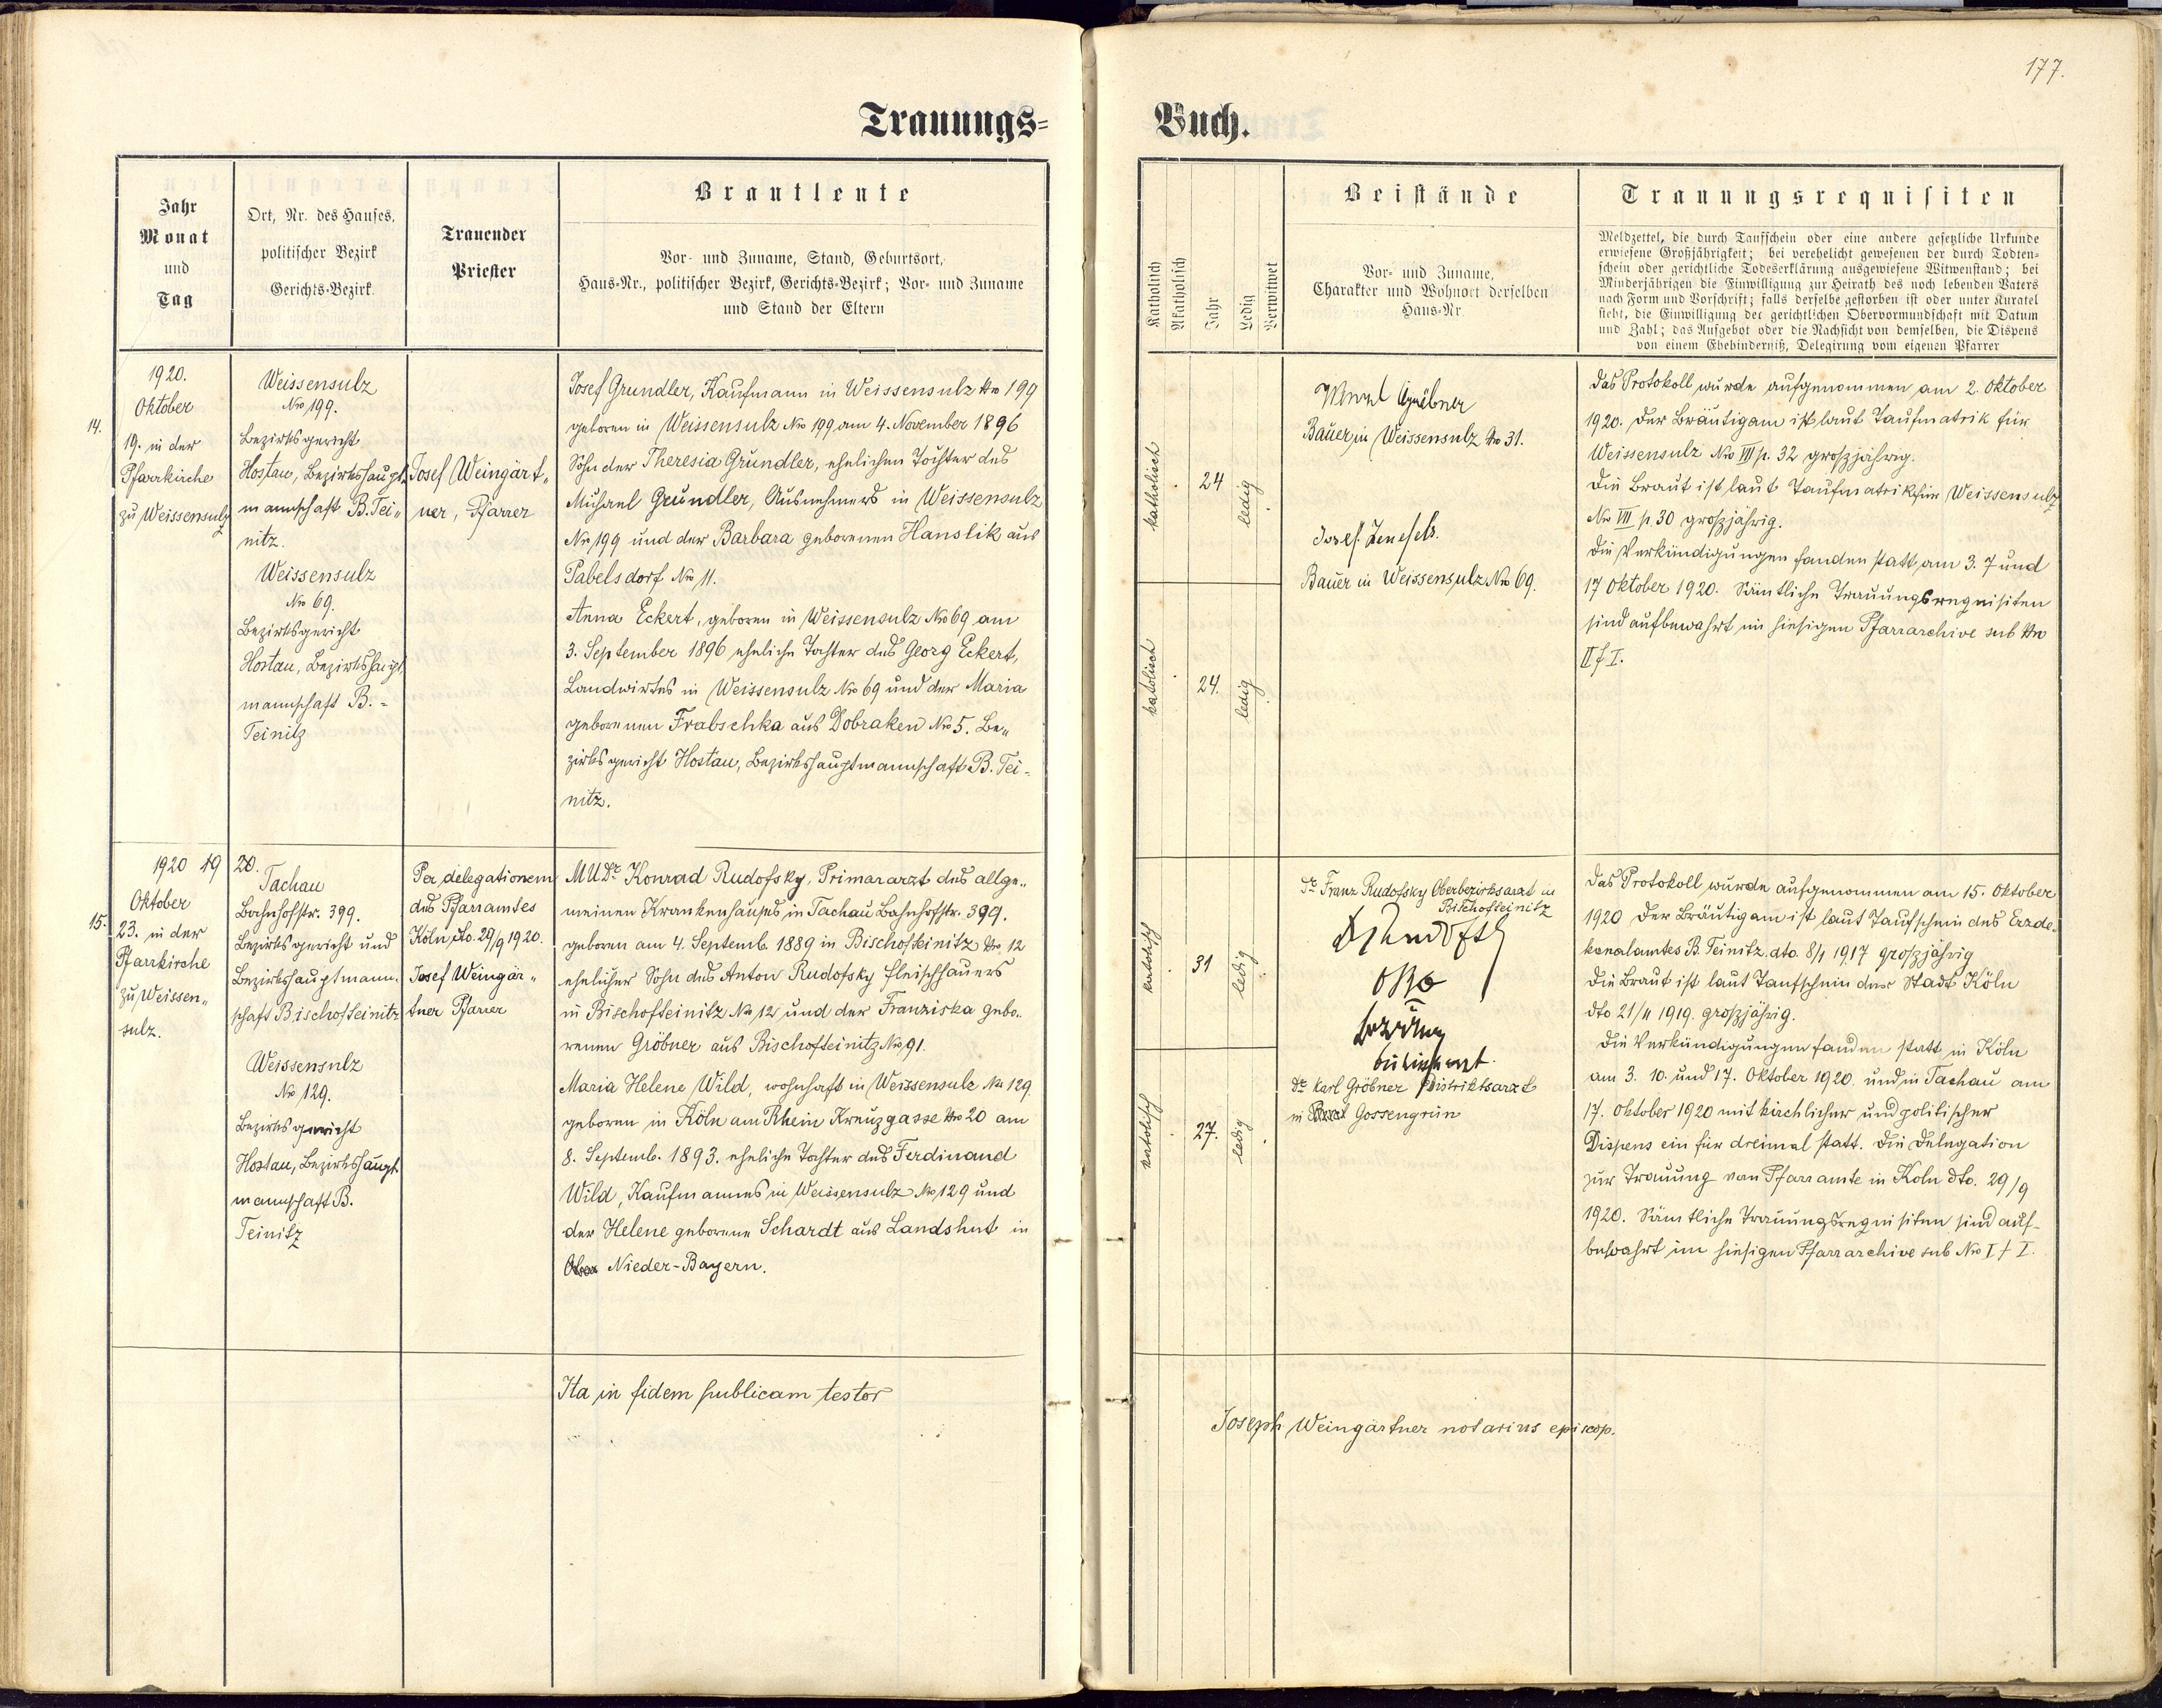 177.
Trauungs=
Buch.
Jahr
Monat
und
Tag
Ort, Nr. des Hauses,
politischer Bezirk
Gerichts=Bezirk.
Trauender
Priester
Brautleute
Vor= und Zuname, Stand, Geburtsort,
Haus=Nr., politischer Bezirk, Gerichts=Bezirk; Vor= und Zuname
und Stand der Eltern
Katholisch
Akatholisch
Jahr
Ledig
Verwitwet
Beistände
Vor= und Zuname,
Charakter und Wohnort derselben
Haus=Nr.
Trauungsrequisiten
Meldzettel, die durch Taufschein oder eine andere gesetzliche Urkunde
erwiesene Großjährigkeit; bei verehelicht gewesenen der durch Todten=
schein oder gerichtliche Todeserklärung ausgewiesene Witwenstand; bei
Minderjährigen die Einwilligung zur Heirath des noch lebenden Vaters
nach Form und Vorschrift; falls derselbe gestorben ist oder unter Kuratel
steht, die Einwilligung der gerichtlichen Obervormundschaft mit Datum
und Zahl; das Aufgebot oder die Nachsicht von demselben, die Dispens
von einem Ehehinderniß, Delegirung vom eigenen Pfarrer
14.
1920.
Oktober
19. in der
Pfarrkirche
zu Weissensulz
Weissensulz
Nro 199.
Bezirksgericht
Hostau, Bezirkshaupt-
mannschaft B. Tei„
nitz.
Weissensulz
Nro 69.
Bezirksgericht
Hostau, Bezirkshaupt
mannschaft B. =
Teinitz
Josef Weingärt„
ner, Pfarrer
Josef Grundler, Kaufmann in Weissensulz Nro 199
geboren in Weissensulz Nro 199 am 4. November 1896
Sohn der Theresia Gründler, ehelichen Tochter des
Michael Gründler, Ausnehmers in Weissensulz
Nro 199 und der Barbara geborenen Hanslik aus
Pabelsdorf Nro 11.
Anna Eckert, geboren in Weissensulz Nro 69 am
3. September 1896 eheliche Tochter des Georg Eckert,
Landwirtes in Weissensulz Nro 69 und der Maria
geborenen Frabschka aus Dobraken Nro 5. Be„
zirksgericht Hostau, Bezirkshauptmannschaft B. Tei=
nitz.
katholisch
24
ledig
katolisch
24.
ledig
Wenzl Gröbner
Bauer in Weissensulz Nro 31.
Josef
Bauer in Weissensulz Nro 69.
Das Protokoll wurde aufgenommen am 2. Oktober
1920. Der Bräutigam ist laut Taufmatrik für
Weissensulz Nro VII p. 32 großjährig.
Die Braut ist laut Taufmatrik für Weissensulz
Nro VII p. 30 großjährig.
Die Verkündigungen fanden statt am 3. 7 und
17 Oktober 1920. Sämtliche Trauungsrequisiten
sind aufbewahrt im hiesigen Pfarrarchive sub Nro
II f I.
15.
1920 19 20.
Oktober
23. in der
Pfarrkirche
zu Weissen„
sulz.
Tachau
Bahnhofstr. 399.
Bezirksgericht und
Bezirkshauptmann-
schaft Bischofteinitz
Weissensulz
Nro 129.
Bezirksgericht
Hostau, Bezirkshaupt
mannschaft B.
Teinitz
Per delegationem
des Pfarramtes
Köln dto. 29/9 1920.
Josef Weingär„
tner Pfarrer
MUDr. Konrad Rudofsky, Primararzt des allge„
meinen Krankenhauses in Tachau Bahnhofstr. 399.
geboren am 4. Septemb. 1889 in Bischofteinitz Nro 12
ehelicher Sohn des Anton Rudofsky Fleischhauers
in Bischofteinitz Nro 12 und der Franziska gebo„
renen Gröbner aus Bischofteinitz Nro 91.
Maria Helene Wild, wohnhaft in Weissensulz Nro 129
geboren in Köln am Rhein Kreuzgasse Nro 20 am
8. Septemb. 1893. eheliche Tochter des Ferdinand
Wild, Kaufmannes in Weissensulz Nro 129 und
der Helene geborene Schardt aus Landshut in
Nieder-Bayern.
katolisch
31
ledig
katolisch
27.
ledig
Dr. Franz Rudofsky Oberbezirksarzt in
Bischofteinitz
Dr. Karl Gröbner Distriktsarzt
in Gossengrün
Das Protokoll wurde aufgenommen am 15. Oktober
1920 Der Bräutigam ist laut Taufschein des Erzde-
kanalamtes B. Teinitz dto. 8/1 1917 großjährig
Die Braut ist laut Taufschein der Stadt Köln
dto 21/11 1919. großjährig.
Die Verkündigungen fanden statt in Köln
am 3. 10. und 17. Oktober 1920. und in Tachau am
17. Oktober 1920 mit kirchlicher und politischer
Dispens ein für dreimal statt. Die Delegation
zur Trauung vom Pfarramte in Köln dto. 29/9
1920. Sämtliche Trauungsrequisiten sind auf-
bewahrt im hiesigen Pfarrarchive sub Nro I f I.
Ita in fidem publicam testor
Joseph Weingärtner notarius episcop.